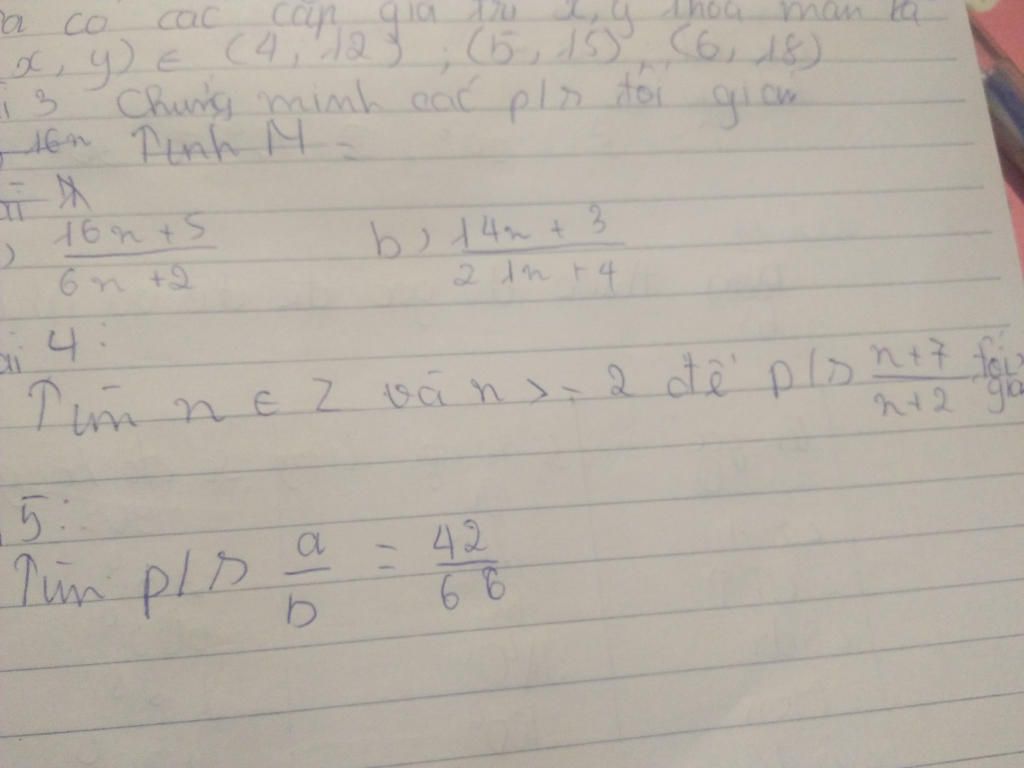 a có các cặp giá trị x, y thoả mãn là
x, y) ∈ (4, 12) ; (5, 15) ; (6, 18)
3 Chứng minh các p/s tối giản
16n Tính M =
) 16n + 5 / 6n + 2 b) 14n + 3 / 21n + 4
ài 4:
Tìm n ∈ Z và n >= 2 để p/s n+7 / n+2 tối giản
5:
Tìm p/s a / b = 42 / 66